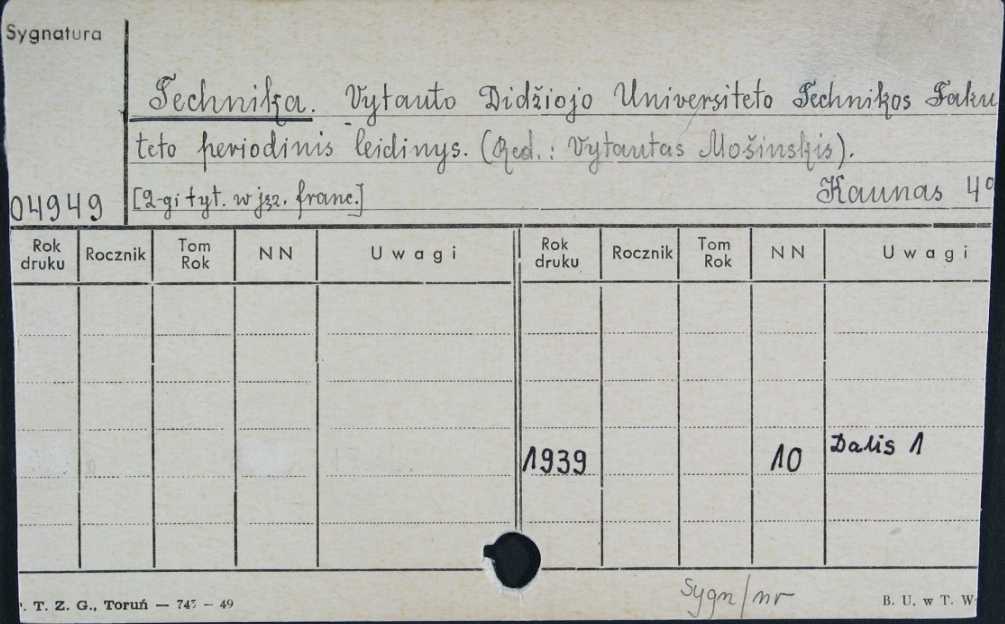 Sygnatura
Technika. Vytauto Didžiojo Universiteto Technikos Faku
teto periodinis leidinys. (Red.: Vytautas Mošinskis).
04949 [2-gi tyt. w jęz. franc.] Kaunas 4°
Rok druku Rocznik Tom Rok NN Uwagi Rok druku Rocznik Tom Rok NN Uwagi
1939 10 Dalis 1
. T. Z. G., Toruń — 745 — 49 Sygn/nr B. U. w T. W